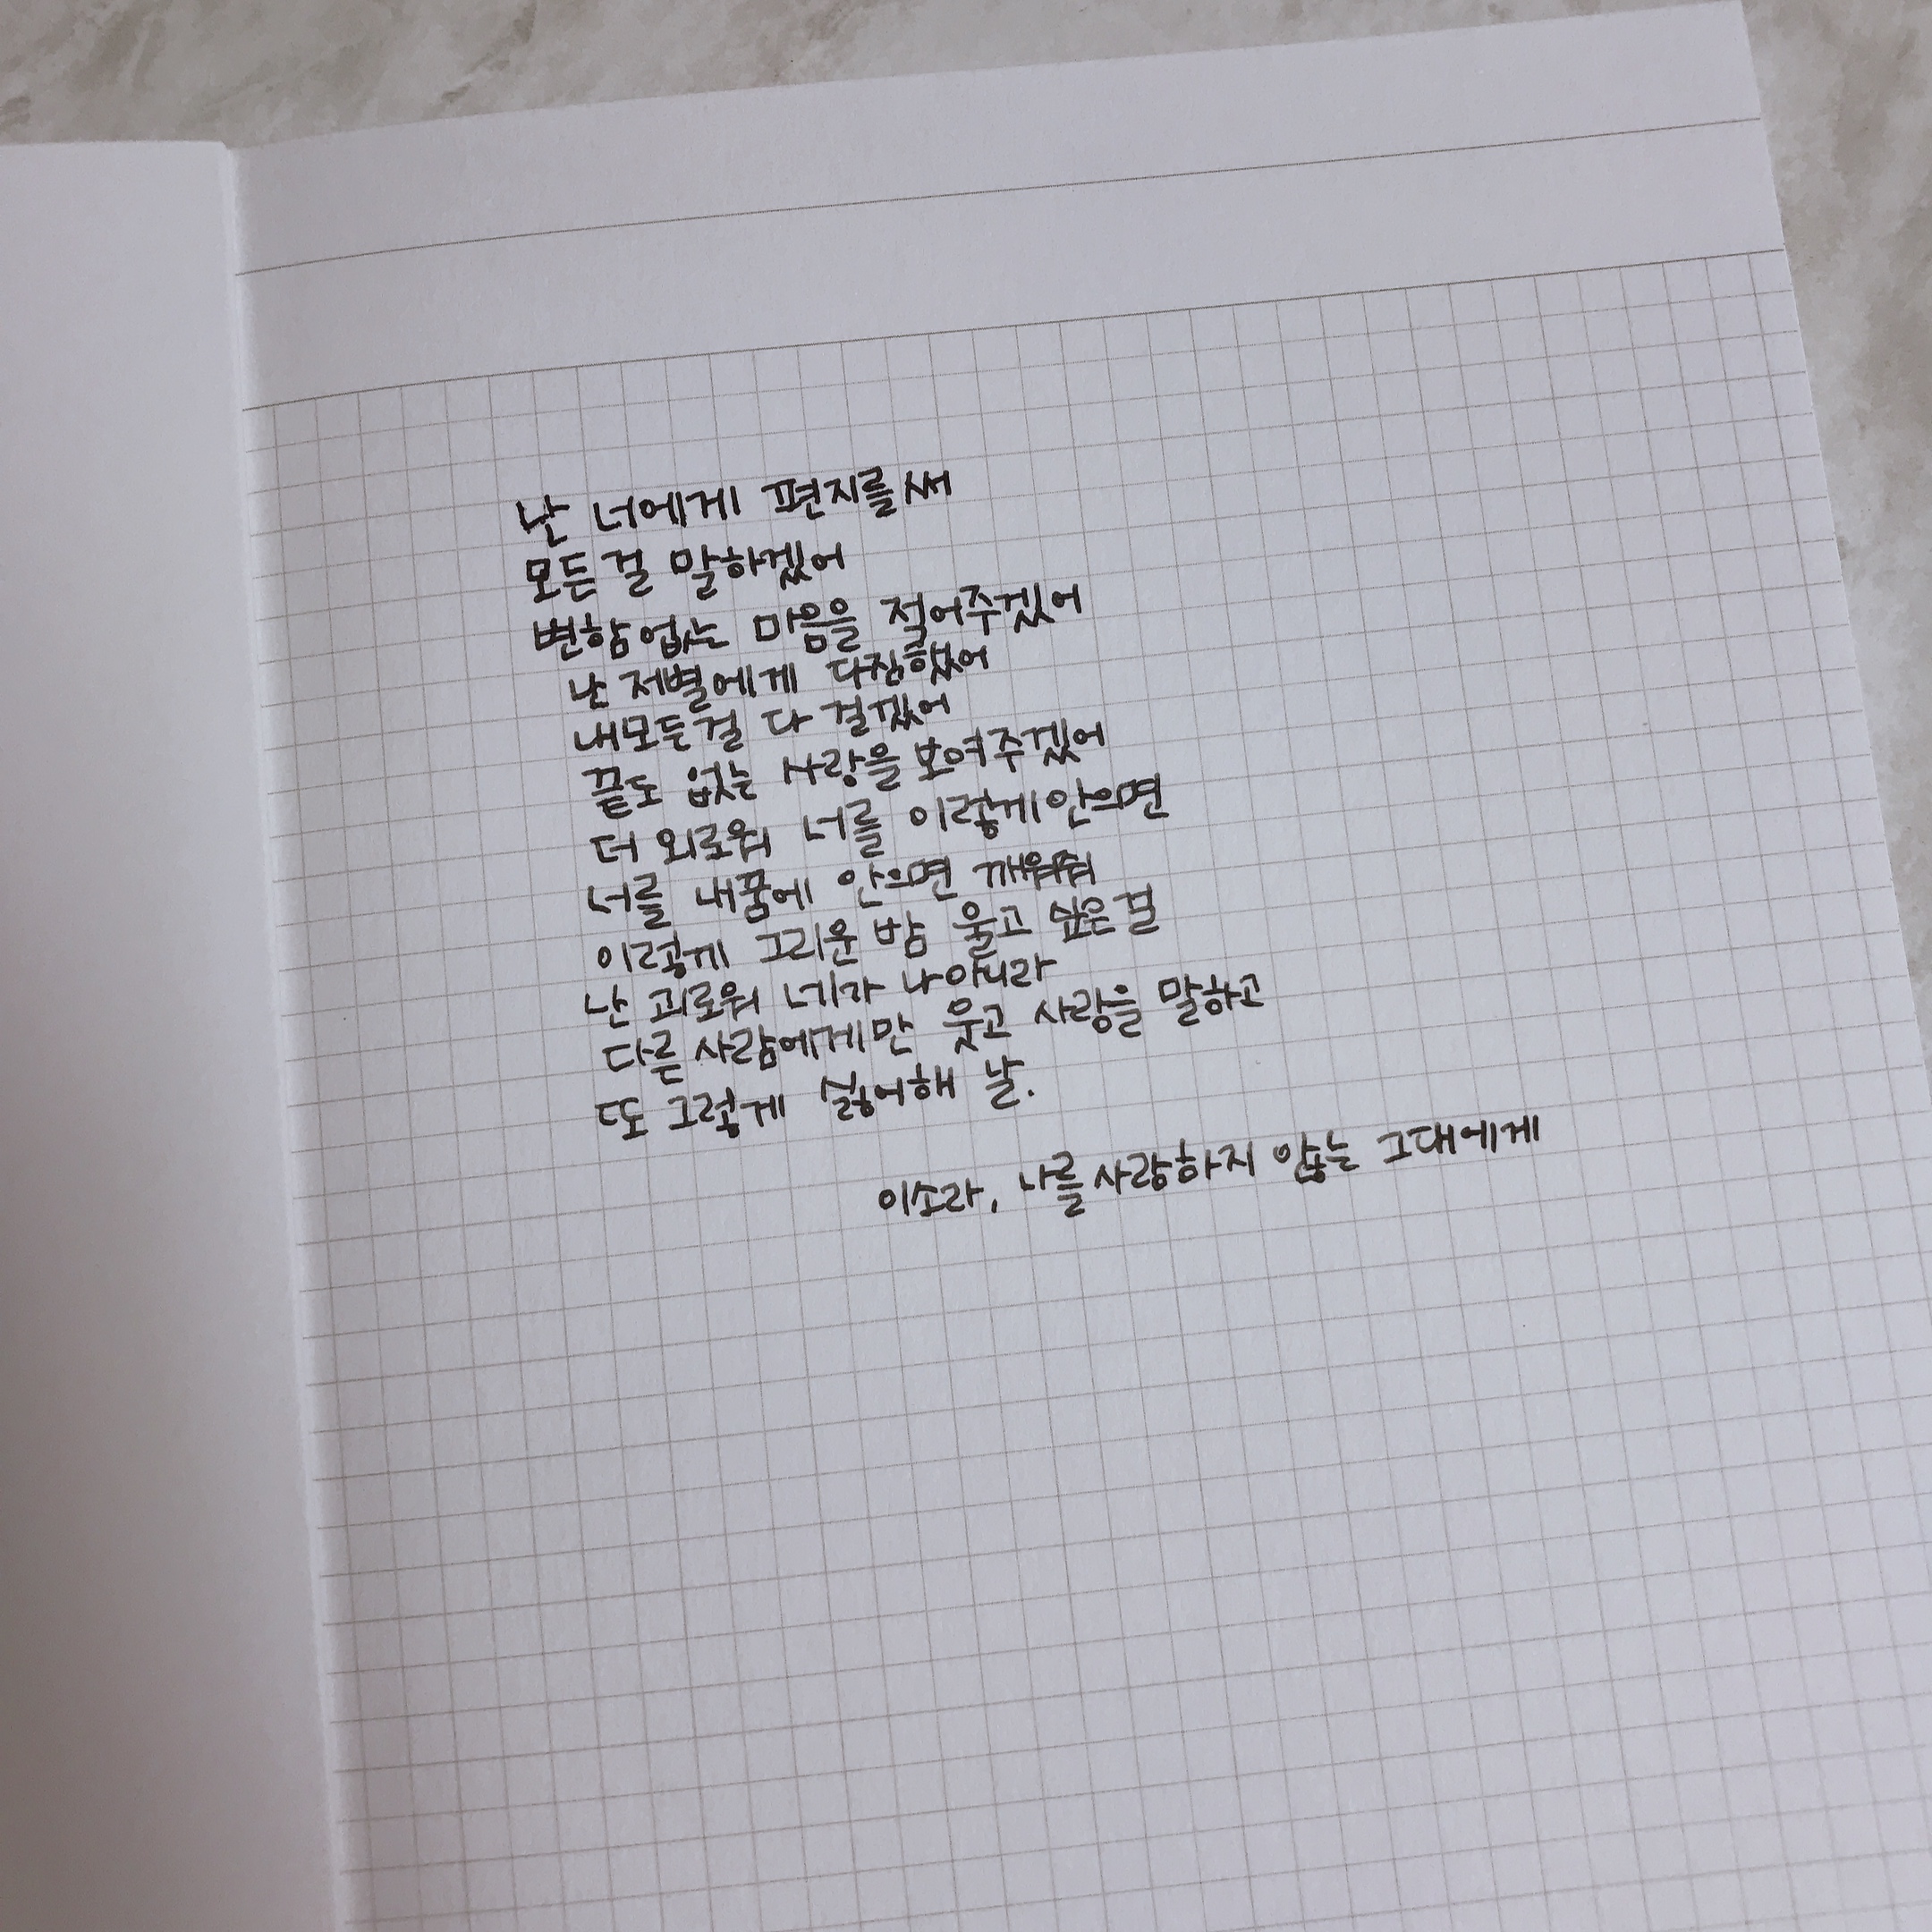 난 너에게 편지를 써
모든걸 말하겠어
변함없는 마음을 적어주겠어
난 저별에게 다짐했어
내모든걸 다 걸겠어
끝도 없는 사랑을 보여주겠어
더 외로워 너를 이렇게 안으면
너를 내품에 안으면 깨워줘
이렇게 그리운 밤 울고 싶은걸
난 괴로워 네가 나 아니라
다른 사람에게만 웃고 사랑을 말하고
또 그렇게 싫어해 날.
이소라, 나를 사랑하지 않는 그대에게